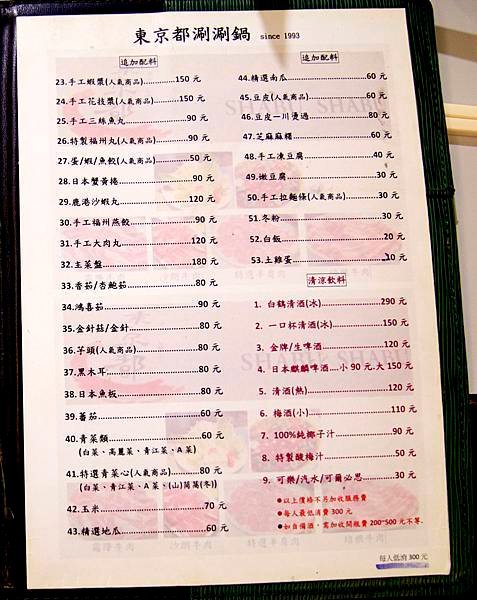 東京都涮涮鍋 since 1993
追加配料
23.手工蝦漿(人氣商品)..............150 元
24.手工花枝漿(人氣商品)...........150 元
25.手工三絲魚丸....................90 元
26.特製福州丸(人氣商品)............90 元
27.蛋/蝦/魚餃(人氣商品)............50 元
28.日本蟹黃捲......................90 元
29.鹿港沙蝦丸.....................120 元
30.手工福州燕餃....................90 元
31.手工大肉丸.....................120 元
32.主菜盤.........................180 元
33.香菇/杏鮑菇.....................80 元
34.鴻喜菇..........................90 元
35.金針菇/金針.....................80 元
36.芋頭(人氣商品)..................80 元
37.黑木耳..........................80 元
38.日本魚板........................80 元
39.蕃茄............................60 元
40.青菜類..........................60 元
(白菜、高麗菜、青江菜、A菜)
41.特選青菜心(人氣商品)............80 元
(白菜、青江菜、A菜、(山)茼蒿(冬))
42.玉米............................70 元
43.精選地瓜........................60 元
追加配料
44.精選南瓜........................60 元
45.豆皮(人氣商品)..................60 元
46.豆皮一川燙過....................80 元
47.芝麻麻糬........................60 元
48.手工凍豆腐......................40 元
49.嫩豆腐..........................30 元
50.手工拉麵條(人氣商品)............30 元
51.冬粉............................30 元
52.白飯............................20 元
53.土雞蛋..........................10 元
清涼飲料
1. 白鶴清酒(冰)...................290 元
2. 一口杯清酒(冰).................150 元
3. 金牌/生啤酒....................120 元
4. 日本麒麟啤酒....小 90 元.大 150 元
5. 清酒(熱).......................120 元
6. 梅酒(小).......................110 元
7. 100%純椰子汁....................90 元
8. 特製酸梅汁......................50 元
9. 可樂/汽水/可爾必思..............30 元
●以上價格不另加收服務費
●每人最低消費 300 元
●如自備酒,需加收開瓶費 200~500 元不等.
每人低消 300 元